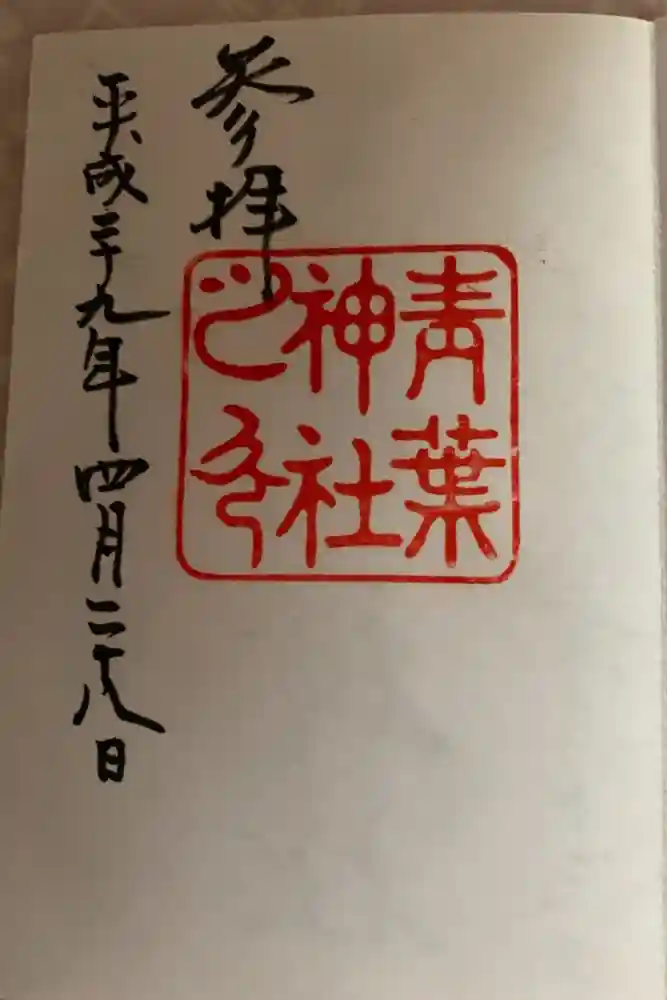 青葉
神社
之印
参拝
平成二十九年四月二十八日